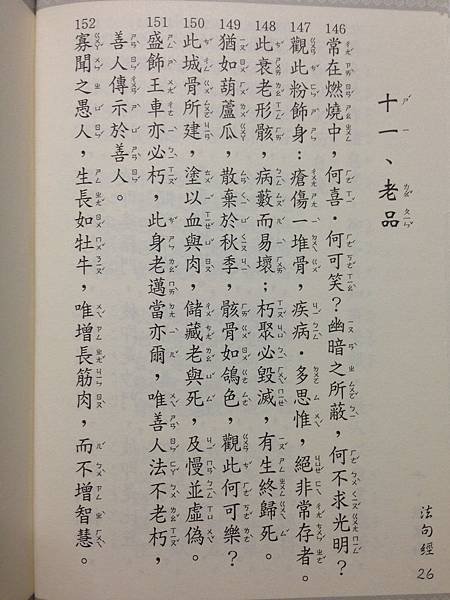 十一、老品
146 常在燃燒中，何喜·何可笑？幽暗之所蔽，何不求光明？
147 觀此粉飾身：瘡傷一堆骨，疾病·多思惟，絕非常存者。
148 此衰老形骸，病藪而易壞；朽聚必毀滅，有生終歸死。
149 猶如葫蘆瓜，散棄於秋季，骸骨如鴿色，觀此何可樂？
150 此城骨所建，塗以血與肉，儲藏老與死，及慢並虛偽。
151 盛飾王車亦必朽，此身老邁當亦爾，唯善人法不老朽，
善人傳示於善人。
152 寡聞之愚人，生長如牡牛，唯增長筋肉，而不增智慧。
法句經 26